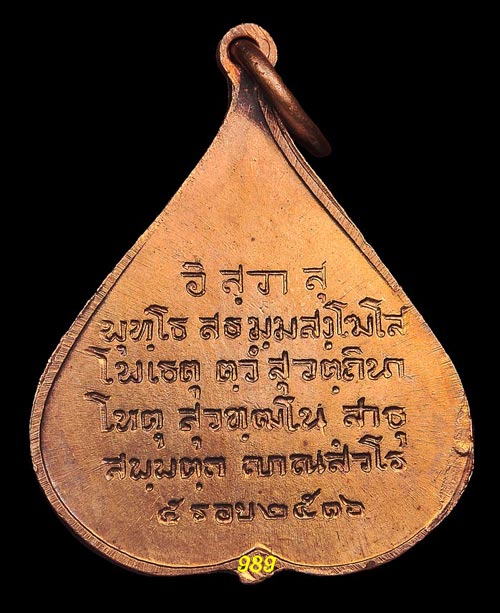 อิ สฺวา สุ
พุทฺโธ สธมฺมสงฺโฆโส
โพเธตุ ตฺวํ สุวตฺถินา
โหตุ สุวฑฺฒโน สาธุ
สพฺพตฺถ ญาณสํวโร
๕ รอบ ๒๕๓๖
989